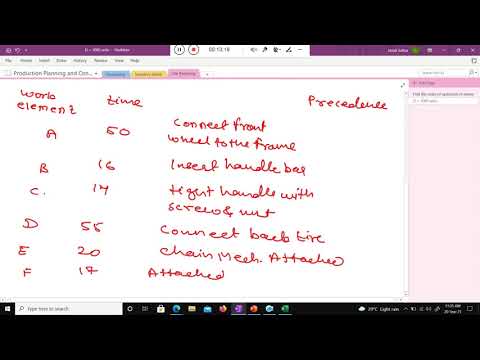 D = 1000 units - OneNote
00:13:18
Production Planning and Con...
Add Page
D = 1000 units
Work element time Precedence
A 50 Connect front wheel to the frame
B 16 Insert handle bar
C. 14 tight handle with screw & nut
D 55 Connect back tire
E 20 chain Mech. Attached
F 17 Attached
Type here to search
29°C Light rain